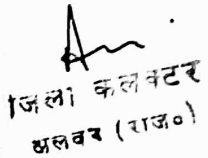 जिला कलक्टर
अलवर (राज०)